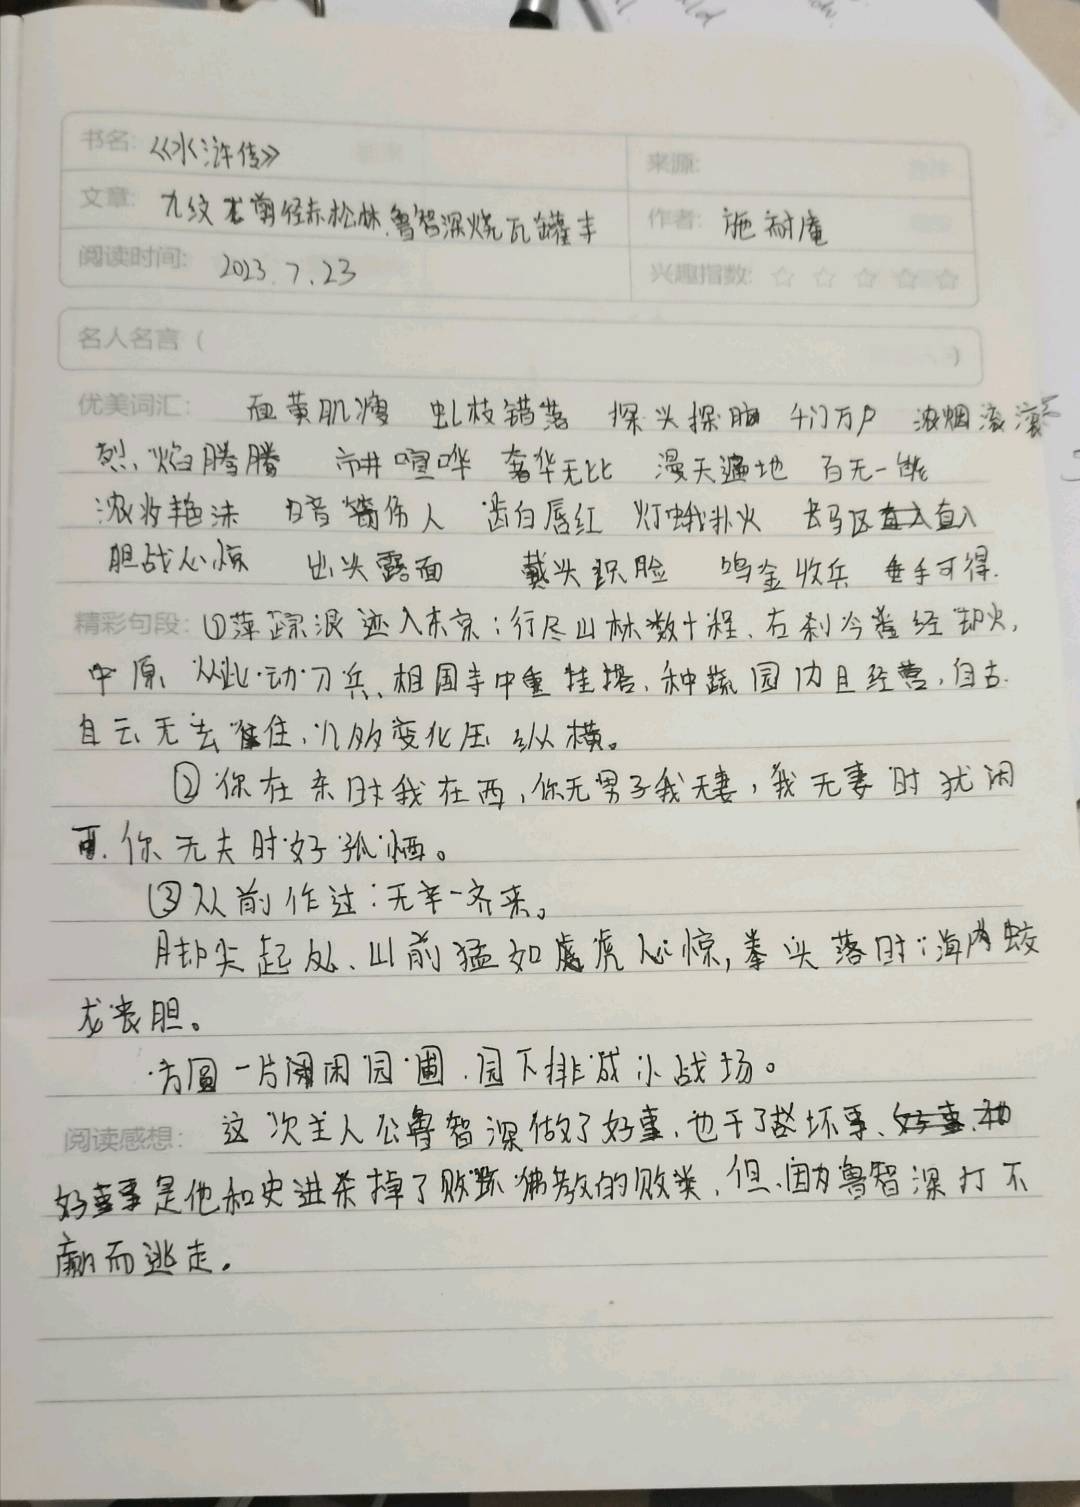 书名: 《水浒传》
来源:
文章: 九纹龙剪径赤松林.鲁智深烧瓦罐寺
作者: 施耐庵
阅读时间: 2023.7.23
兴趣指数: ☆ ☆ ☆ ☆ ☆
名人名言 ( )
优美词汇: 面黄肌瘦 虬枝错落 探头探脑 千门万户 浓烟滚滚
烈焰腾腾 市井喧哗 奢华无比 漫天遍地 百无一能
浓妆艳抹 暗箭伤人 齿白唇红 灯蛾扑火 长驱直入
胆战心惊 出头露面 戴头识脸 鸣金收兵 垂手可得.
精彩句段: ①萍踪浪迹入东京;行尽山林数十程、古刹今番经劫火,
中原从此动刀兵、相国寺中重挂搭、种蔬园内且经营,自古
白云无去住,几多变化任纵横。
②你在东时我在西,你无男子我无妻,我无妻时犹闲
可.你无夫时好孤恓。
③从前作过:无幸一齐来。
脚尖起处、山前猛如虎心惊,拳头落时;海内蛟
龙丧胆。
方圆一片闲园圃.园下排成小战场。
阅读感想: 这次主人公鲁智深做了好事、也干了坏事、
好事是他和史进杀掉了败坏佛教的败类,但、因为鲁智深打不
赢而逃走.